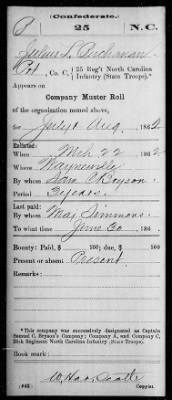 Confederate.
25 N.C.
Julius L. Buchanan
Pvt, Co. C, 25 Reg't North Carolina
Infantry (State Troops).*
Appears on
Company Muster Roll
of the organization named above,
for July & Aug, 1862.
Enlisted:
When Mch 22 1862.
Where Waynesville
By whom Sam C Bryson.
Period 3 years.
Last paid:
By whom Maj Simmons.
To what time June 30 186
Bounty: Paid $ 100; due $ 100
Present or absent Present.
Remarks:
*This company was successively designated as Captain
Samuel C. Bryson's Company; Company A, and Company C,
25th Regiment North Carolina Infantry (State Troops).
Book mark:
(642)
Copyist.